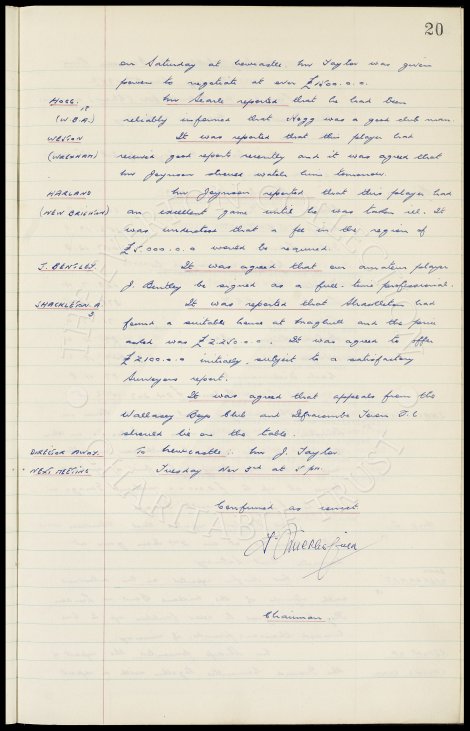 20
on Saturday at Newcastle. Mr Taylor was given
power to negotiate at over £1500.0.0.
HOGG. Mr Searle reported that he had been
(W.B.A.) reliably informed that Hogg was a good club man.
WESTON It was reported that this player had
(WREXHAM) received good reports recently and it was agreed that
Mr Joynson should watch him tomorrow.
HARLAND Mr Joynson reported that this player had
(NEW BRIGHTON) an excellent game until he was taken ill. It
was understood that a fee in the region of
£5.000.0.0 would be required.
J. BENTLEY. It was agreed that our amateur player
J. Bentley be signed as a full-time professional.
SHACKLETON. A It was reported that Shackleton had
found a suitable house at Maghull and the price
asked was £2250.0.0. It was agreed to offer
£2100.0.0 initially, subject to a satisfactory
surveyors report.
It was agreed that appeals from the
Wallasey Boys Club and Ilfracombe Town F.C.
should lie on the table.
DIRECTOR AWAY. To Newcastle:- Mr J. Taylor.
NEXT MEETING Tuesday Nov 3rd at 5 pm.
Confirmed as correct
Chairman.
CHARITABLE TRUST